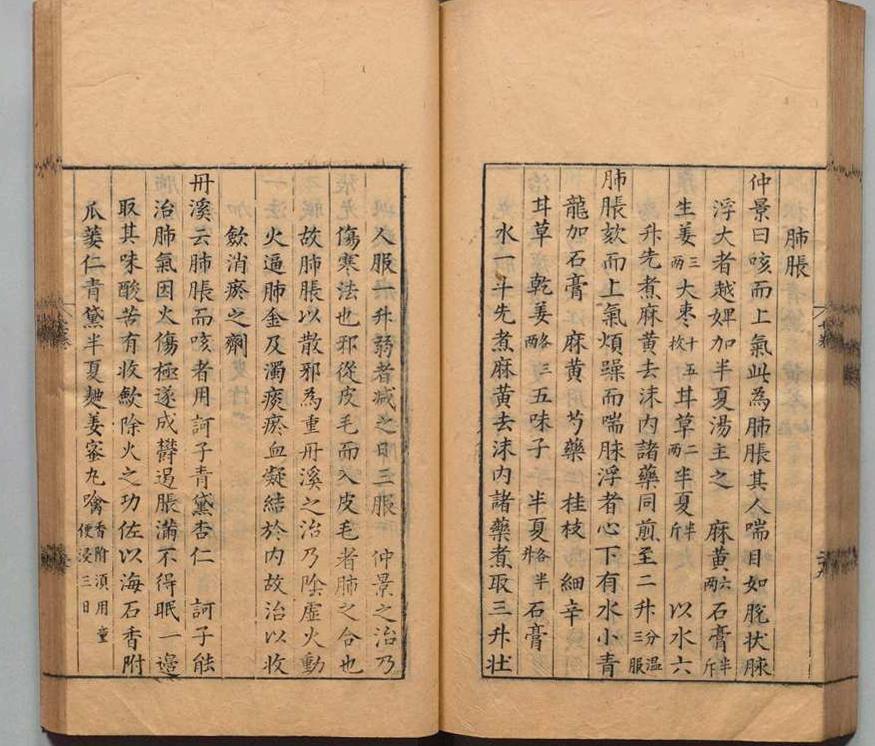 肺脹
仲景曰咳而上氣此為肺脹其人喘目如脫狀脉
浮大者越婢加半夏湯主之 麻黃六兩石膏半斤
生姜三兩大棗十五枚甘草二兩半夏半斤 以水六
升先煮麻黃去沫內諸藥同煎至二升分温三服
肺脹欬而上氣煩躁而喘脉浮者心下有水小青
龍加石膏 麻黃 芍藥 桂枝 細辛
甘草 乾姜各三兩五味子 半夏各半升石膏
水一斗先煮麻黃去沫內諸藥煮取三升壮
人服一升弱者减之日三服 仲景之治乃
傷寒法也邪從皮毛而入皮毛者肺之合也
故肺脹以散邪為重丹溪之治乃陰虛火動
火逼肺金及濁痰瘀血凝結於內故治以收
歛消瘀之劑
丹溪云肺脹而咳者用訶子青黛杏仁 訶子能
治肺氣因火傷極遂成欝遏脹滿不得眠一邉
取其味酸苦有收歛除火之功佐以海石香附
瓜蔞仁青黛半夏麯姜蜜丸噙香附須用童便浸三日